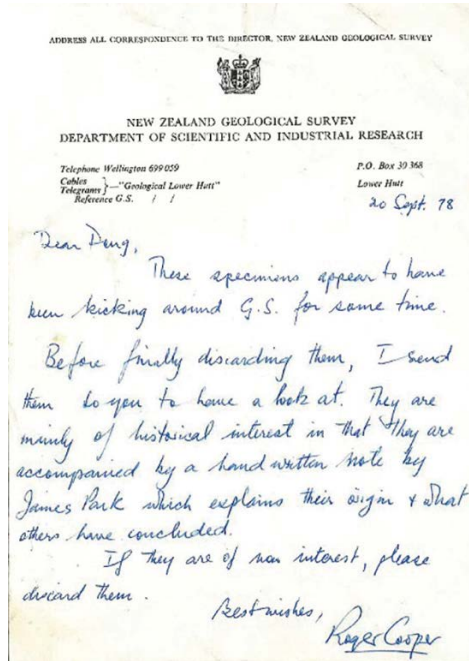 ADDRESS ALL CORRESPONDENCE TO THE DIRECTOR, NEW ZEALAND GEOLOGICAL SURVEY
NEW ZEALAND GEOLOGICAL SURVEY
DEPARTMENT OF SCIENTIFIC AND INDUSTRIAL RESEARCH
Telephone Wellington 699 059
P.O. Box 30 368
Cables
Telegrams }—"Geological Lower Hutt"
Lower Hutt
Reference G.S. / /
20 Sept. 78
Dear Doug,
These specimens appear to have
been kicking around G.S. for some time.
Before finally discarding them, I send
them to you to have a look at. They are
mainly of historical interest in that they are
accompanied by a hand written note by
James Park which explains their origin & what
others have concluded.
If they are of non interest, please
discard them.
Best wishes,
Roger Cooper